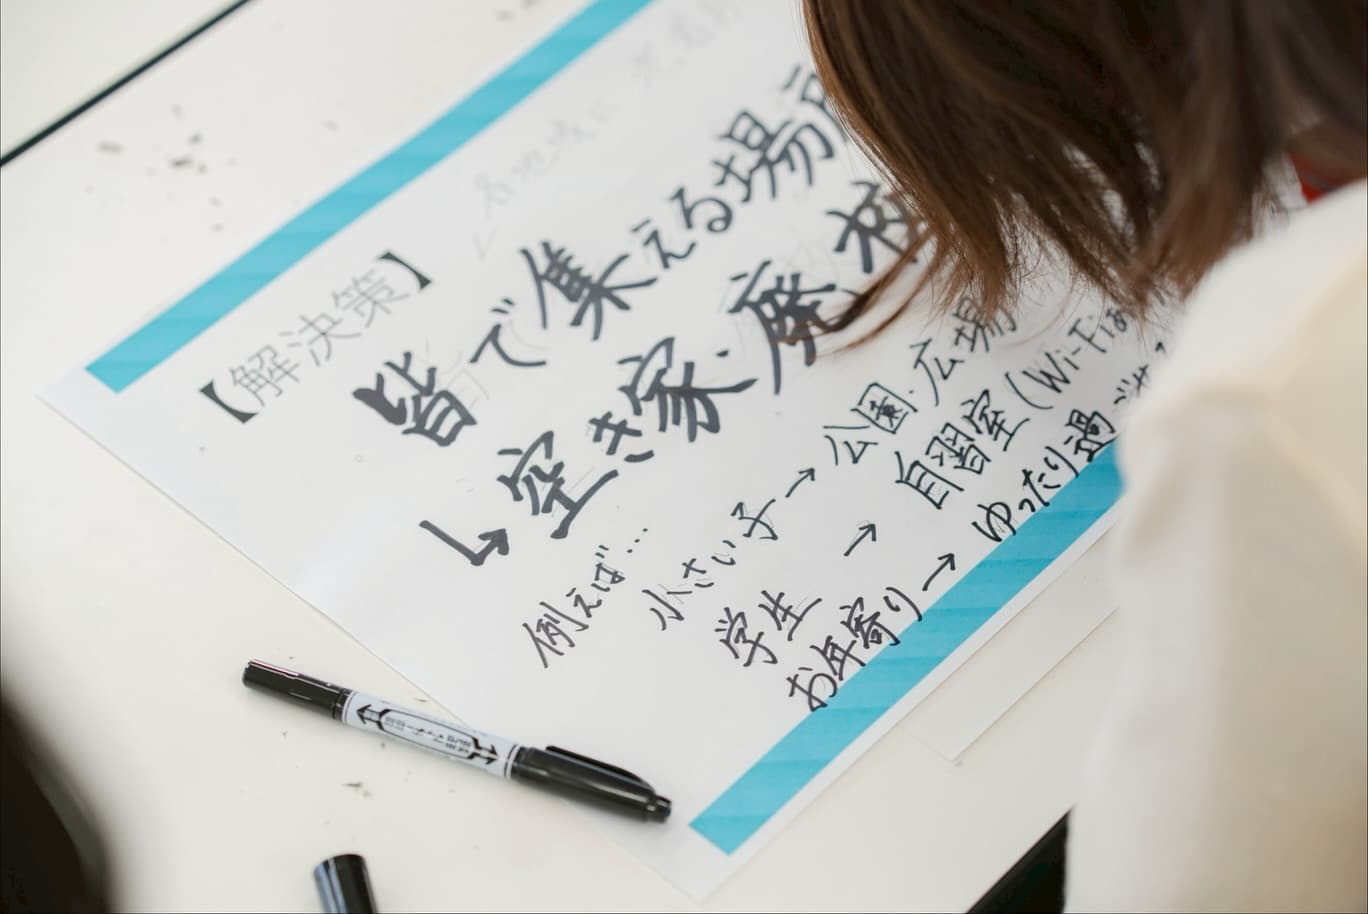 【解決策】
皆で集える場所
↳空き家・廃校
例えば…
小さい子→公園・広場
学生→自習室(Wi-Fiあ
お年寄り→ゆったり過ごせ